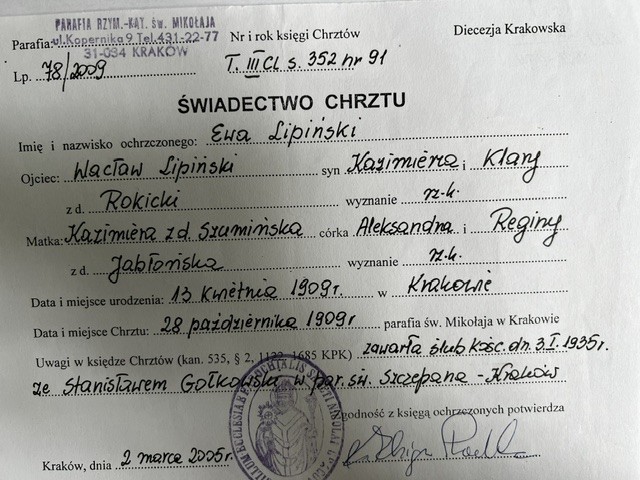 PARAFIA RZYM.-KAT. św. MIKOŁAJA
Parafia: ul. Kopernika 9 Tel. 431-22-77
31-034 KRAKÓW
Lp. 78/2009
Nr i rok księgi Chrztów
T. III Cl s. 352 nr 91
Diecezja Krakowska
ŚWIADECTWO CHRZTU
Imię i nazwisko ochrzczonego: Ewa Lipiński
Ojciec: Wacław Lipiński syn Kazimierza i Klary
z d. Rokicki wyznanie rz-k.
Matka: Kazimiera z d. Szumińska córka Aleksandra i Reginy
z d. Jabłońska wyznanie rz-k.
Data i miejsce urodzenia: 13 kwietnia 1909r. w Krakowie
Data i miejsce Chrztu: 28 października 1909r parafia św. Mikołaja w Krakowie
Uwagi w księdze Chrztów (kan. 535, § 2, 1122, 1685 KPK) zawarła ślub kość. dn. 3.I.1935r.
ze Stanisławem Gołkowską w par. św. Szczepana - Kraków
Zgodność z księgą ochrzczonych potwierdza
Kraków, dnia 2 marca 2005r.